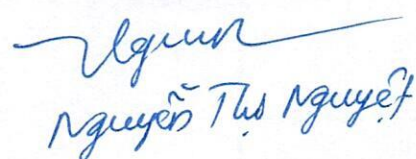 Nguyễn Thị Nguyệt